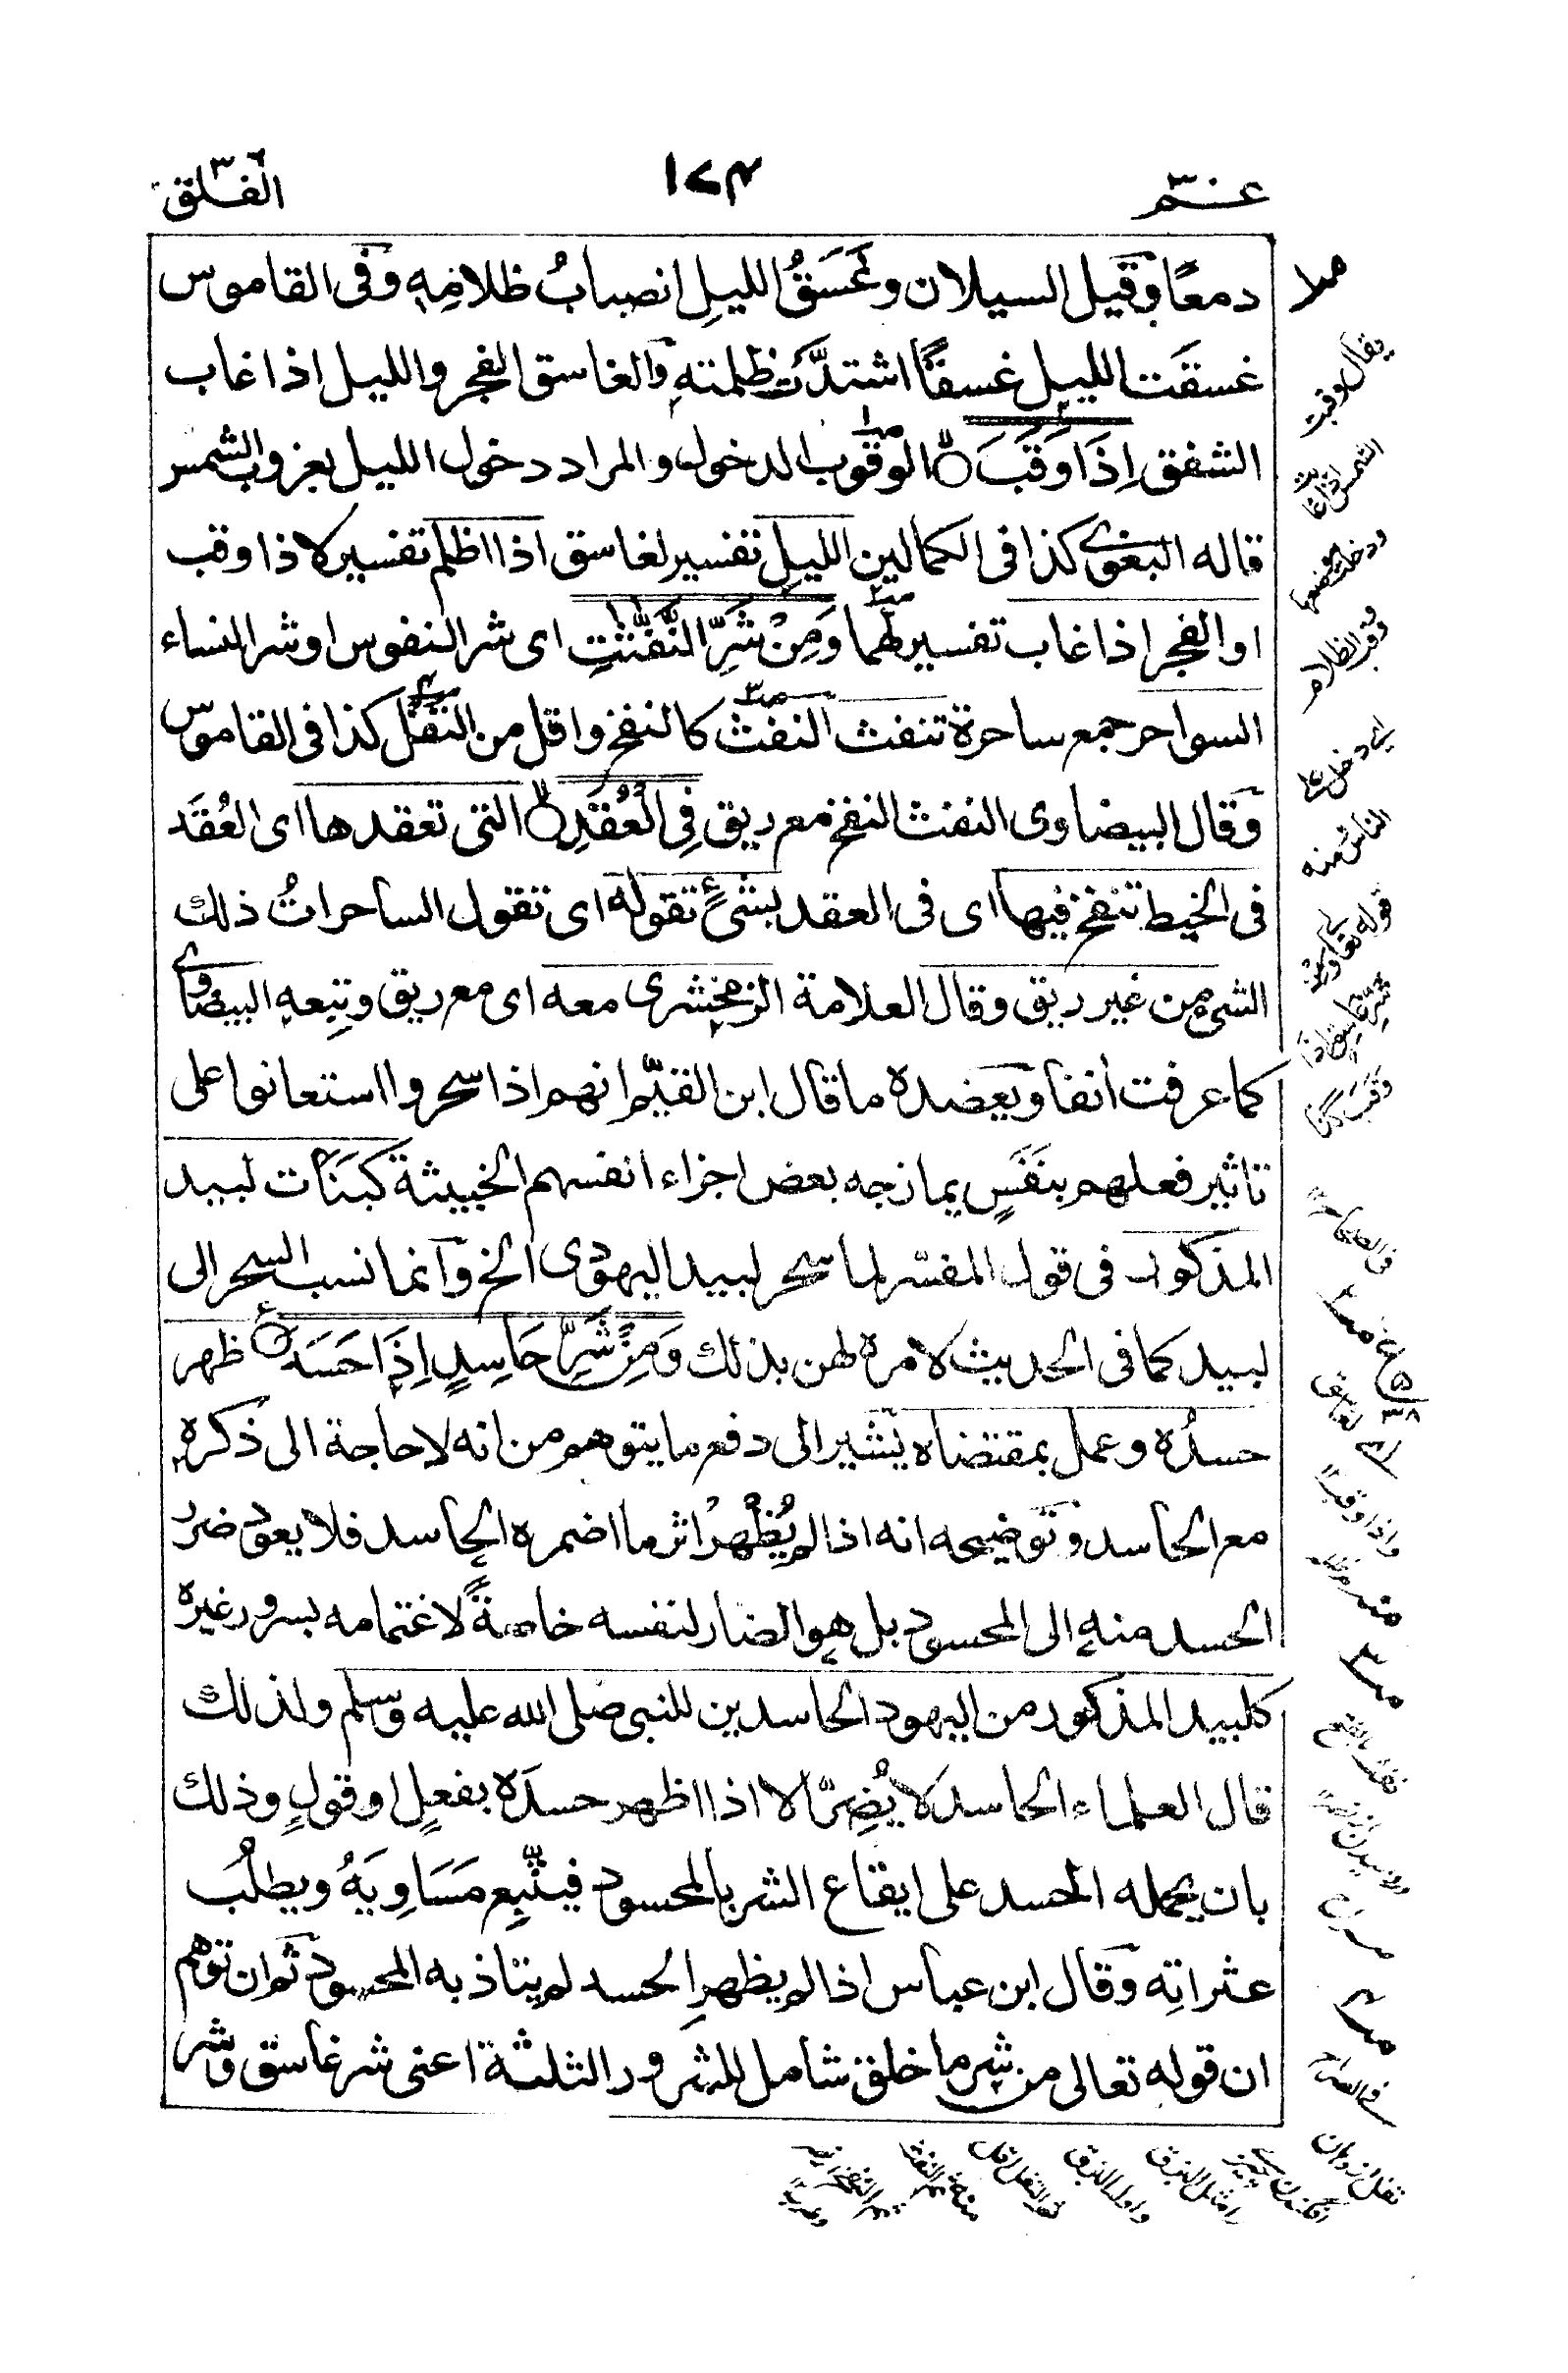 عمّ ٣٠
١٧٤
الفلق
دمعًا وقيل السيلان وغَسَقُ الليلِ انصبابُ ظلامِهٖ وفى القاموس
غسقَت الليل غسقًا اشتدَّت ظلمته والغاسق الفجر والليل اذا غاب
الشفق اِذَا وَقَبَ الوقوب الدخول والمراد دخول الليل بغروب الشمس
قاله البغوى كذا فى الكمالين الليلِ تفسير لغاسق اذا اظلم تفسير لاذا وقب
او الفجر اذا غاب تفسير لهما وَمِنْ شَرِّ النَّفّٰثٰتِ اى شر النفوس او شر النساء
السواحر جمع ساحرة تنفث النفث كالنفخ واقل من التفل كذا فى القاموس
وقال البيضاوى النفث النفخ مع ريق فِى الْعُقَدِ التى تعقدها اى العُقَد
فى الخيط تنفخ فيها اى فى العقد بشئٍ تقوله اى تقول الساحراتُ ذلك
الشئ من غير ريق وقال العلامة الزمخشرى معه اى مع ريق وتبعهٖ البيضاوى
كما عرفت أنفا ويعضده ما قال ابن القيّم انهم اذا سحروا استعانوا على
تاثير فعلهم بنَفَسٍ يمازجه بعض اجزاء انفسهم الخبيثة كبَنَات لبيد
المذكور فى قول المفسّر لما سحر لبيد اليهودى الخ وانما نسب السحر الى
لبيد كما فى الحديث لامره لهن بذلك وَمِنْ شَرِّ حَاسِدٍ اِذَا حَسَدَ ظهر
حسدُه وعمل بمقتضاه يشير الى دفع ما يتوهم من انه لا حاجة الى ذكره
مع الحاسد وتوضيحه انه اذا لم يُظْهِرْ اثر ما اضمره الحاسد فلا يعود ضرر
الحسد منه الى المحسود بل هو الضار لنفسه خاصةً لاغتمامه بسرور غيره
كلبيد المذكور من اليهود الحاسدين للنبى صلى الله عليه وسلم ولذلك
قال العلماء الحاسد لا يُضِرّ الا اذا اظهر حسدَه بفعلٍ او قولٍ وذلك
بان يحمله الحسد على ايقاع الشر بالمحسود فيتّبِع مَسَاوِيَهُ ويطلُبَ
عثراتِه وقال ابن عباس اذا لم يظهرِ الحسد لم يتاذ به المحسود ثم ان توهم
ان قوله تعالى من شر ما خلق شامل للشرور الثلثة اعنى شر غاسق وشر
يقال وقبت
الشمس اذا غابت
ودخلت موضعها
وقب الظلام
اى دخل على
الناس منه
قوله تعالى ومن
شر غاسق اذا
وقب